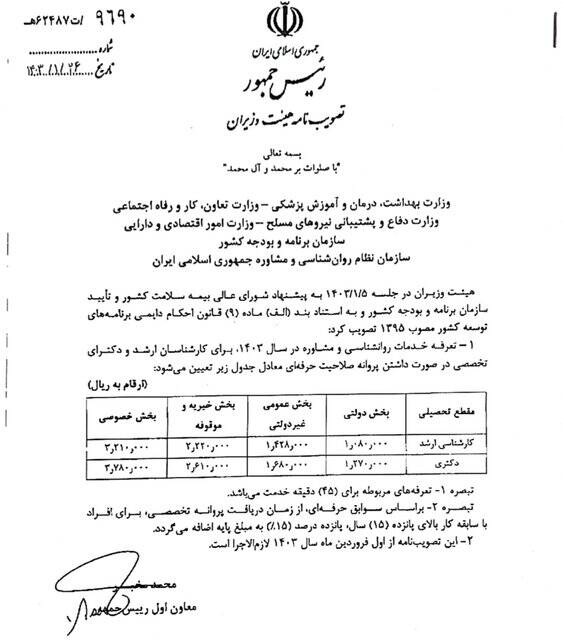 ۹۶۹۰ /ت۶۲۴۸۷هـ
شماره
تاریخ ۱۴۰۳/۱/۲۶
جمهوری اسلامی ایران
رئیس جمهور
تصویب نامه هیئت وزیران
بسمه تعالی
"با صلوات بر محمد و آل محمد"
وزارت بهداشت، درمان و آموزش پزشکی – وزارت تعاون، کار و رفاه اجتماعی
وزارت دفاع و پشتیبانی نیروهای مسلح – وزارت امور اقتصادی و دارایی
سازمان برنامه و بودجه کشور
سازمان نظام روان‌شناسی و مشاوره جمهوری اسلامی ایران
هیئت وزیران در جلسه ۱۴۰۳/۱/۵ به پیشنهاد شورای عالی بیمه سلامت کشور و تأیید
سازمان برنامه و بودجه کشور و به استناد بند (الف) ماده (۹) قانون احکام دایمی برنامه‌های
توسعه کشور مصوب ۱۳۹۵ تصویب کرد:
۱- تعرفه خدمات روانشناسی و مشاوره در سال ۱۴۰۳، برای کارشناسان ارشد و دکترای
تخصصی در صورت داشتن پروانه صلاحیت حرفه‌ای معادل جدول زیر تعیین می‌شود:
(ارقام به ریال)
مقطع تحصیلی بخش دولتی بخش عمومی غیردولتی بخش خیریه و موقوفه بخش خصوصی
کارشناسی ارشد ۱٫۰۸۰٫۰۰۰ ۱٫۴۲۸٫۰۰۰ ۲٫۲۲۰٫۰۰۰ ۳٫۲۱۰٫۰۰۰
دکتری ۱٫۲۷۰٫۰۰۰ ۱٫۶۸۰٫۰۰۰ ۲٫۶۱۰٫۰۰۰ ۳٫۷۸۰٫۰۰۰
تبصره ۱- تعرفه‌های مربوطه برای (۴۵) دقیقه خدمت می‌باشد.
تبصره ۲- براساس سوابق حرفه‌ای، از زمان دریافت پروانه تخصصی، برای افراد
با سابقه کار بالای پانزده (۱۵) سال، پانزده درصد (۱۵٪) به مبلغ پایه اضافه می‌گردد.
۲- این تصویب‌نامه از اول فروردین ماه سال ۱۴۰۳ لازم‌الاجرا است.
محمد مخبر
معاون اول رییس جمهور